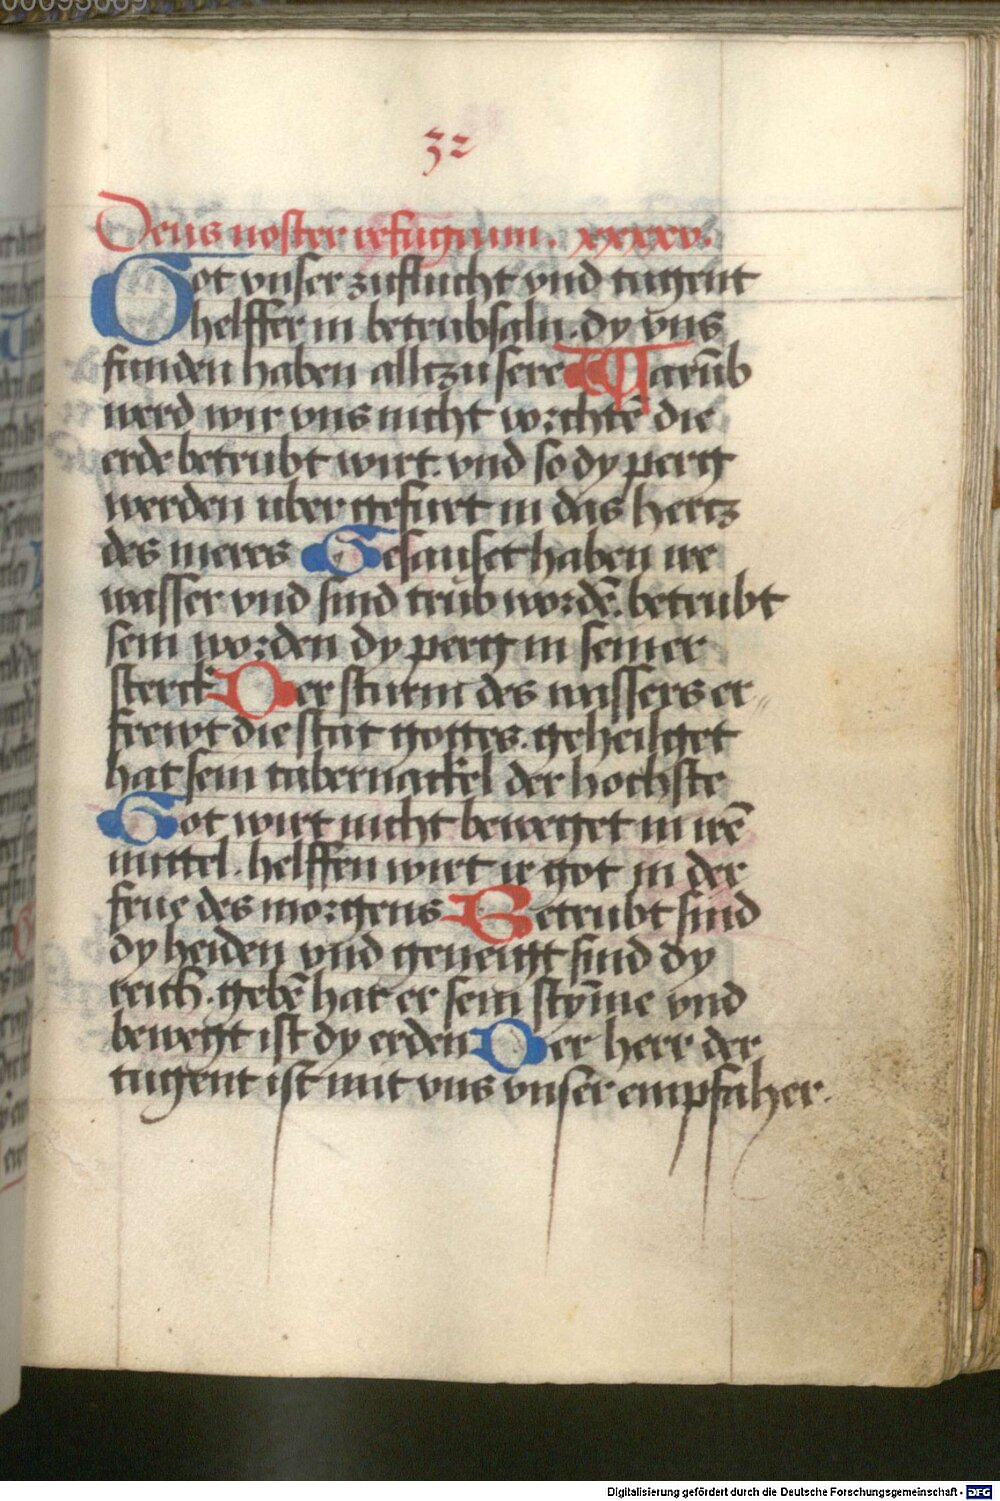 00095069
32
Deus noster refugium. xxxxv.
Got vnser zuflucht vnd tugent
helffer in betrubsaln. dy vns
funden haben alltzu sere Warūb
werd wir vns nicht vorchtē die
erde betrubt wirt. vnd so dy perg
werden uber gefurt in das hertz
des meres Gesauset haben ire
wasser vnd sind trub wordē. betrubt
sein worden dy perg in seiner
sterck Der sturm des wassers er
frewt die stat gottes. geheiliget
hat sein tabernackel der hochste
Got wirt nicht beweget in irē
mittel. helffen wirt ir got in der
frue des morgens Betrubt sind
dy heiden vnd geneigt sind dy
reich. gebē hat er sein stȳme vnd
bewegt ist dy erden Der herr der
tugent ist mit vns vnser empfaher.
Digitalisierung gefördert durch die Deutsche Forschungsgemeinschaft - DFG